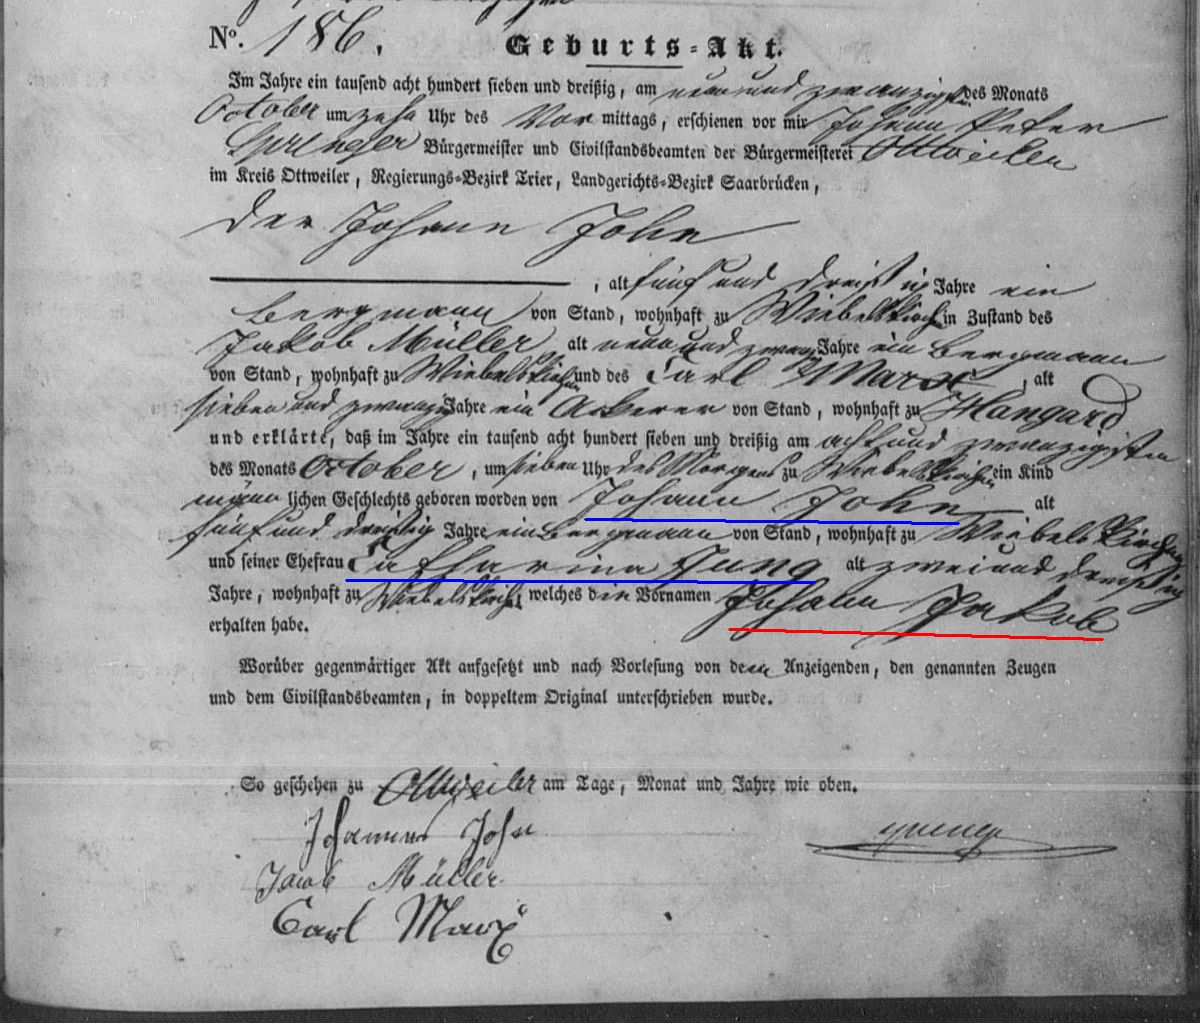 No. 186. Geburts-Akt.
Im Jahre ein tausend acht hundert sieben und dreißig, am neun und zwanzigsten des Monats
October um zehn Uhr des Vor mittags, erschienen vor mir Johann Peter
Sprenger Bürgermeister und Civilstandsbeamten der Bürgermeisterei Ottweiler
im Kreis Ottweiler, Regierungs-Bezirk Trier, Landgerichts-Bezirk Saarbrücken,
der Johann John
, alt fünf und dreißig Jahre ein
Bergmann von Stand, wohnhaft zu Wiebelskirchen in Zustand des
Jakob Müller alt neun und zwanzig Jahre ein Bergmann
von Stand, wohnhaft zu Wiebelskirchen und des Carl Marx, alt
sieben und zwanzig Jahre ein Ackerer von Stand, wohnhaft zu Hangard
und erklärte, daß im Jahre ein tausend acht hundert sieben und dreißig am acht und zwanzigsten
des Monats October, um sieben Uhr des Morgens zu Wiebelskirchen ein Kind
männlichen Geschlechts geboren worden von Johann John alt
fünf und dreißig Jahre ein Bergmann von Stand, wohnhaft zu Wiebelskirchen
und seiner Ehefrau Catharina Jung alt zwei und dreißig
Jahre, wohnhaft zu Wiebelskirchen welches die Vornamen Johann Jakob
erhalten habe.
Worüber gegenwärtiger Akt aufgesetzt und nach Vorlesung von dem Anzeigenden, den genannten Zeugen
und dem Civilstandsbeamten, in doppeltem Original unterschrieben wurde.
So geschehen zu Ottweiler am Tage, Monat und Jahre wie oben.
Johannes John
Jacob Müller
Carl Marx